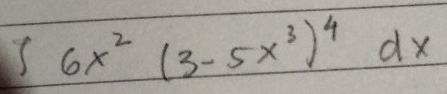 ∫ 6x² (3-5x³)⁴ dx